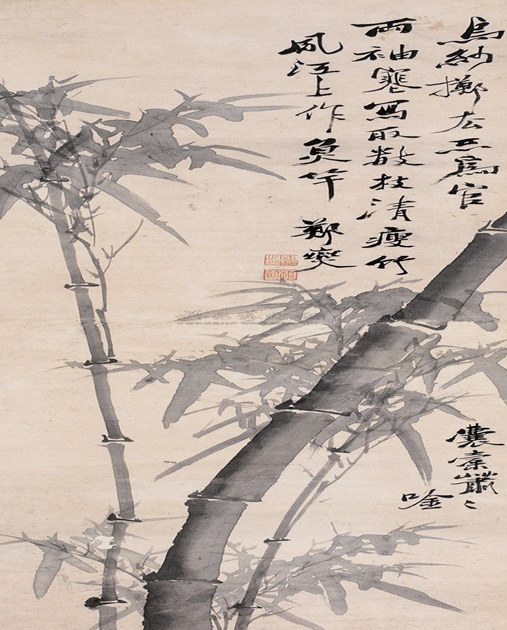 烏紗擲去不為官
兩袖寒寫取數枝清瘦竹
風江上作魚竿 鄭燮
囊橐叢〻
唫